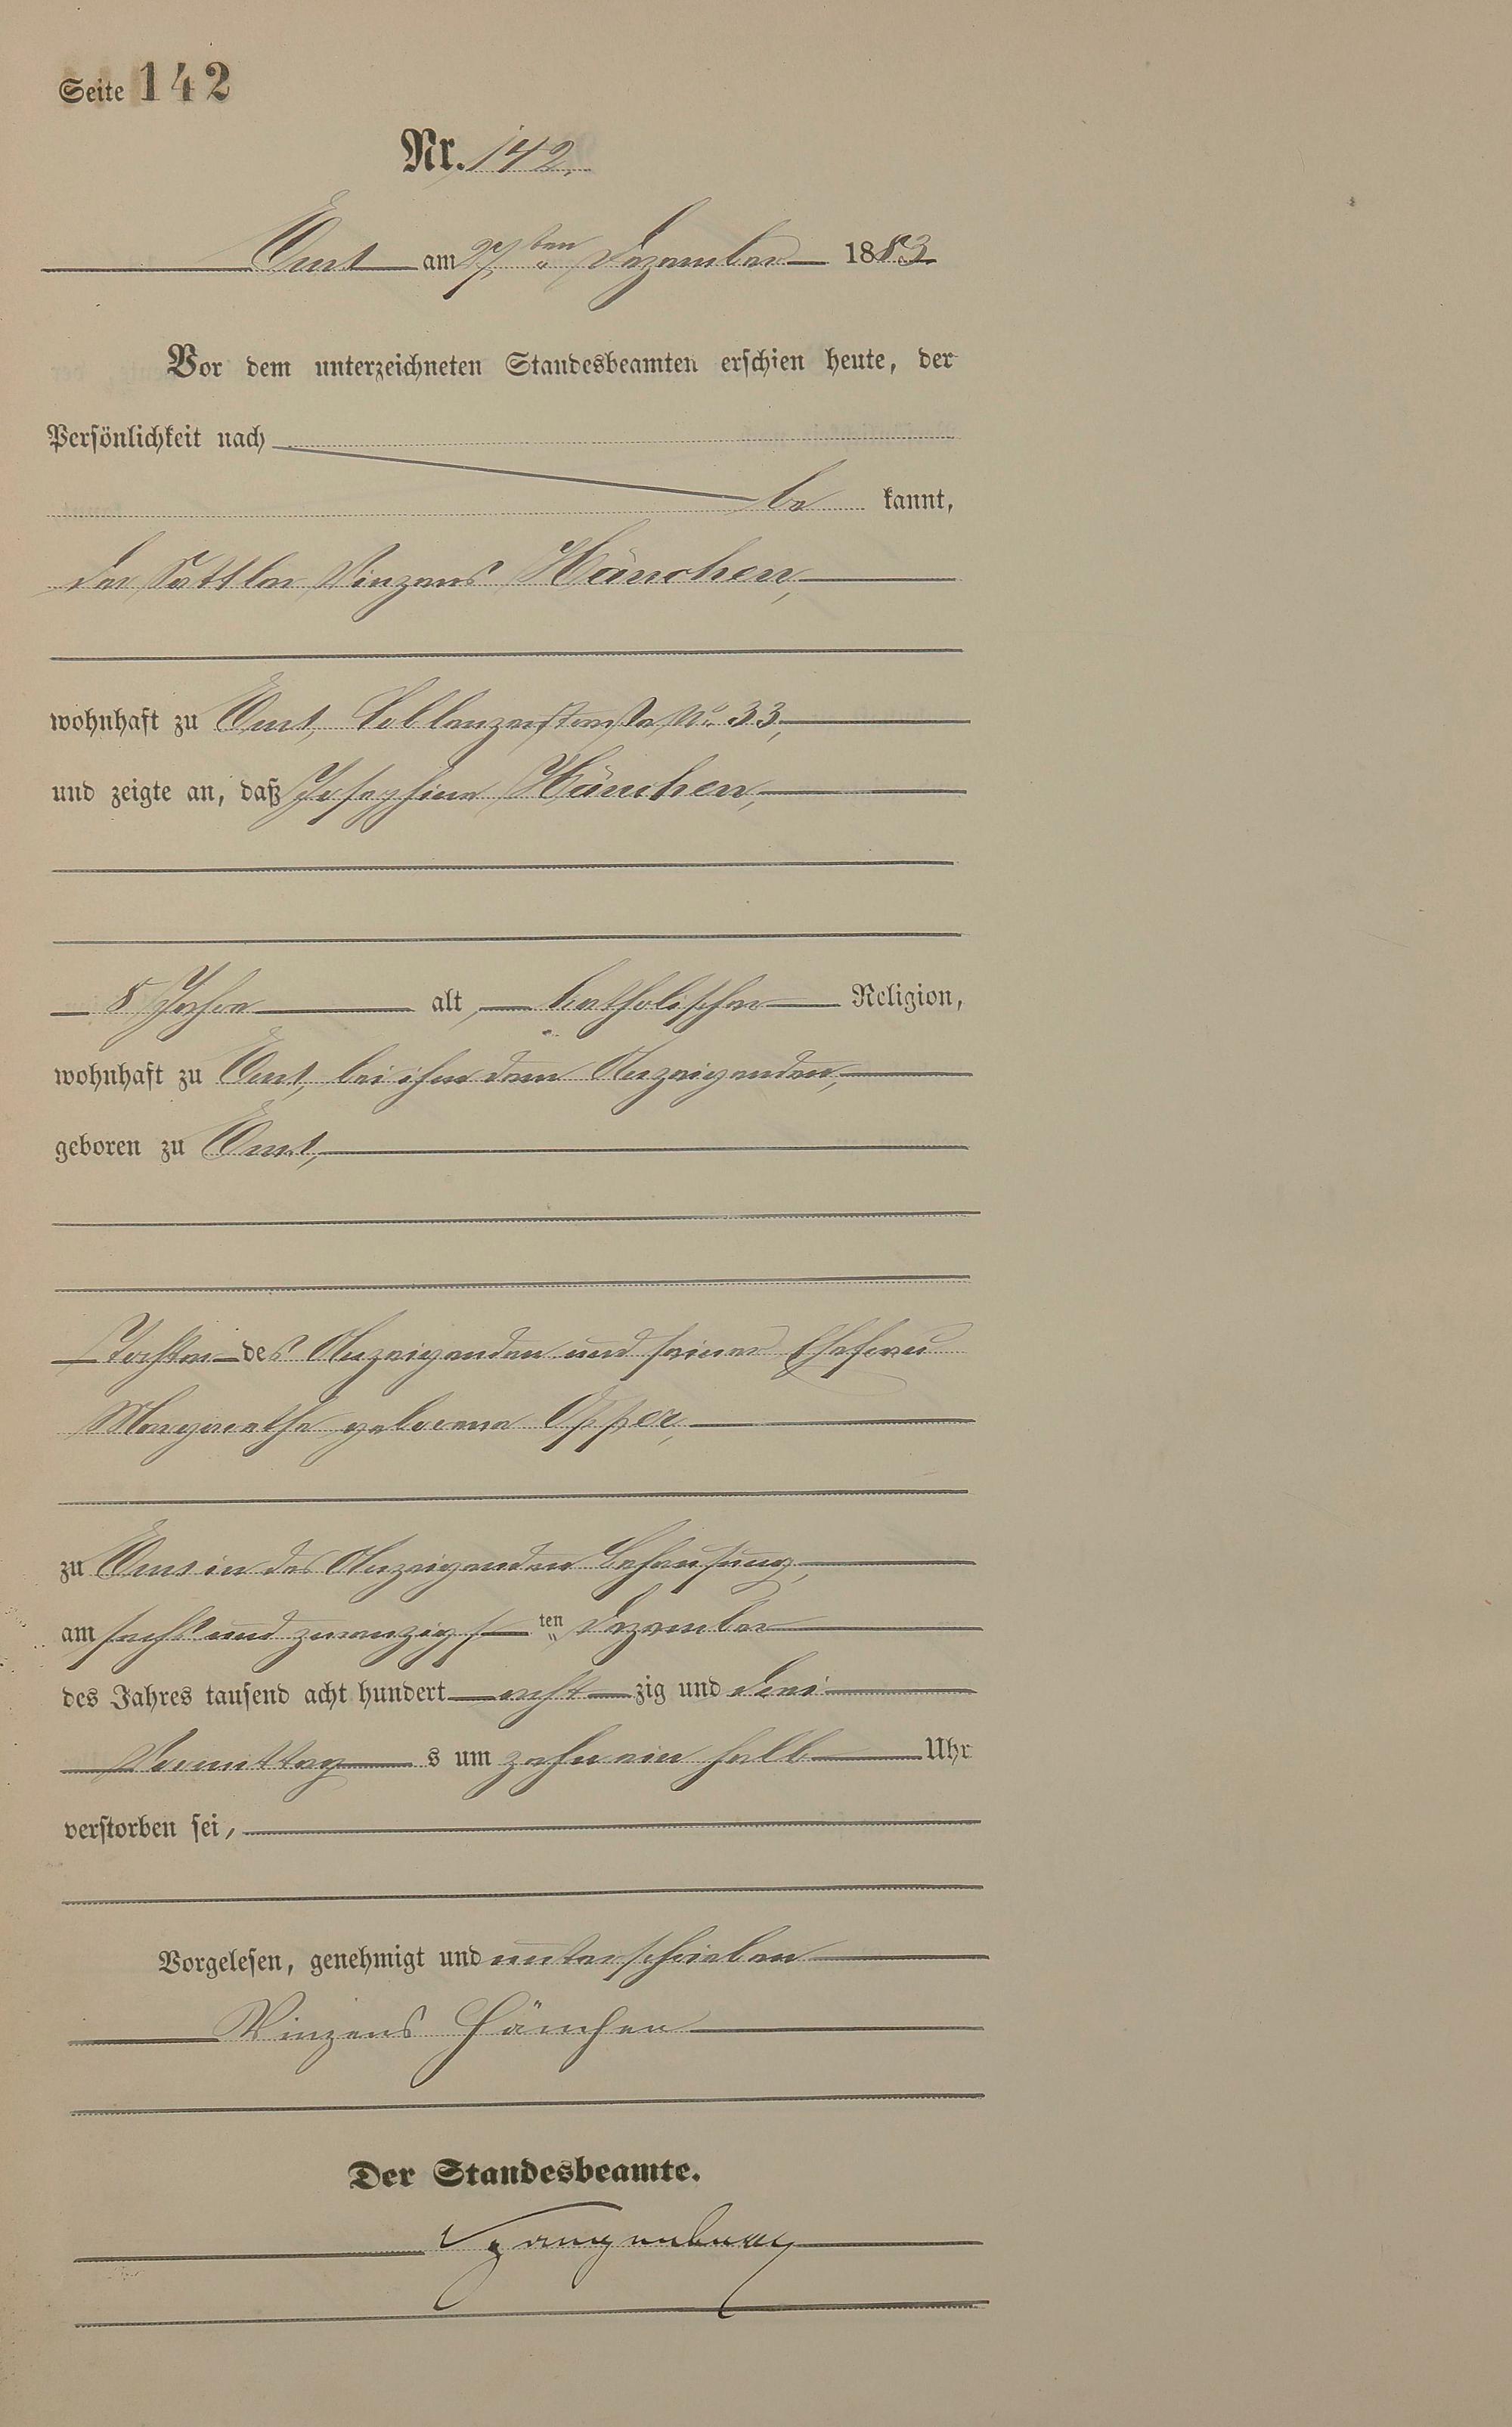 Seite 142
Nr. 142.
Ems am 27ten Dezember 1883
Vor dem unterzeichneten Standesbeamten erschien heute, der
Persönlichkeit nach
be kannt,
der Sattler Vinzens Hänchen,
wohnhaft zu Ems, Coblenzerstraße No. 33,
und zeigte an, daß Josephine Hänchen,
8 Jahre alt, katholischer Religion,
wohnhaft zu Ems, bei ihm dem Anzeigenden,
geboren zu Ems,
Tochter des Anzeigenden und seiner Ehefrau
Margarethe geborene Opper,
zu Ems in des Anzeigenden Behausung,
am sechs und zwanzigsten Dezember
des Jahres tausend acht hundert acht zig und drei
Vormittag s um zehn ein halb Uhr
verstorben sei,
Vorgelesen, genehmigt und unterschrieben
Vinzens Hänchen
Der Standesbeamte.